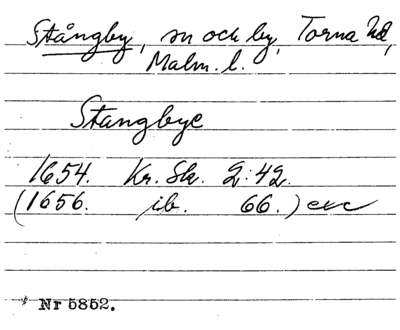 Stångby, sn och by, Torna hd,
Malm. l.
Stangbye
1654. Kr. Sk. 2:42.
(1656. ib. 66.) etc
Nr 5852.